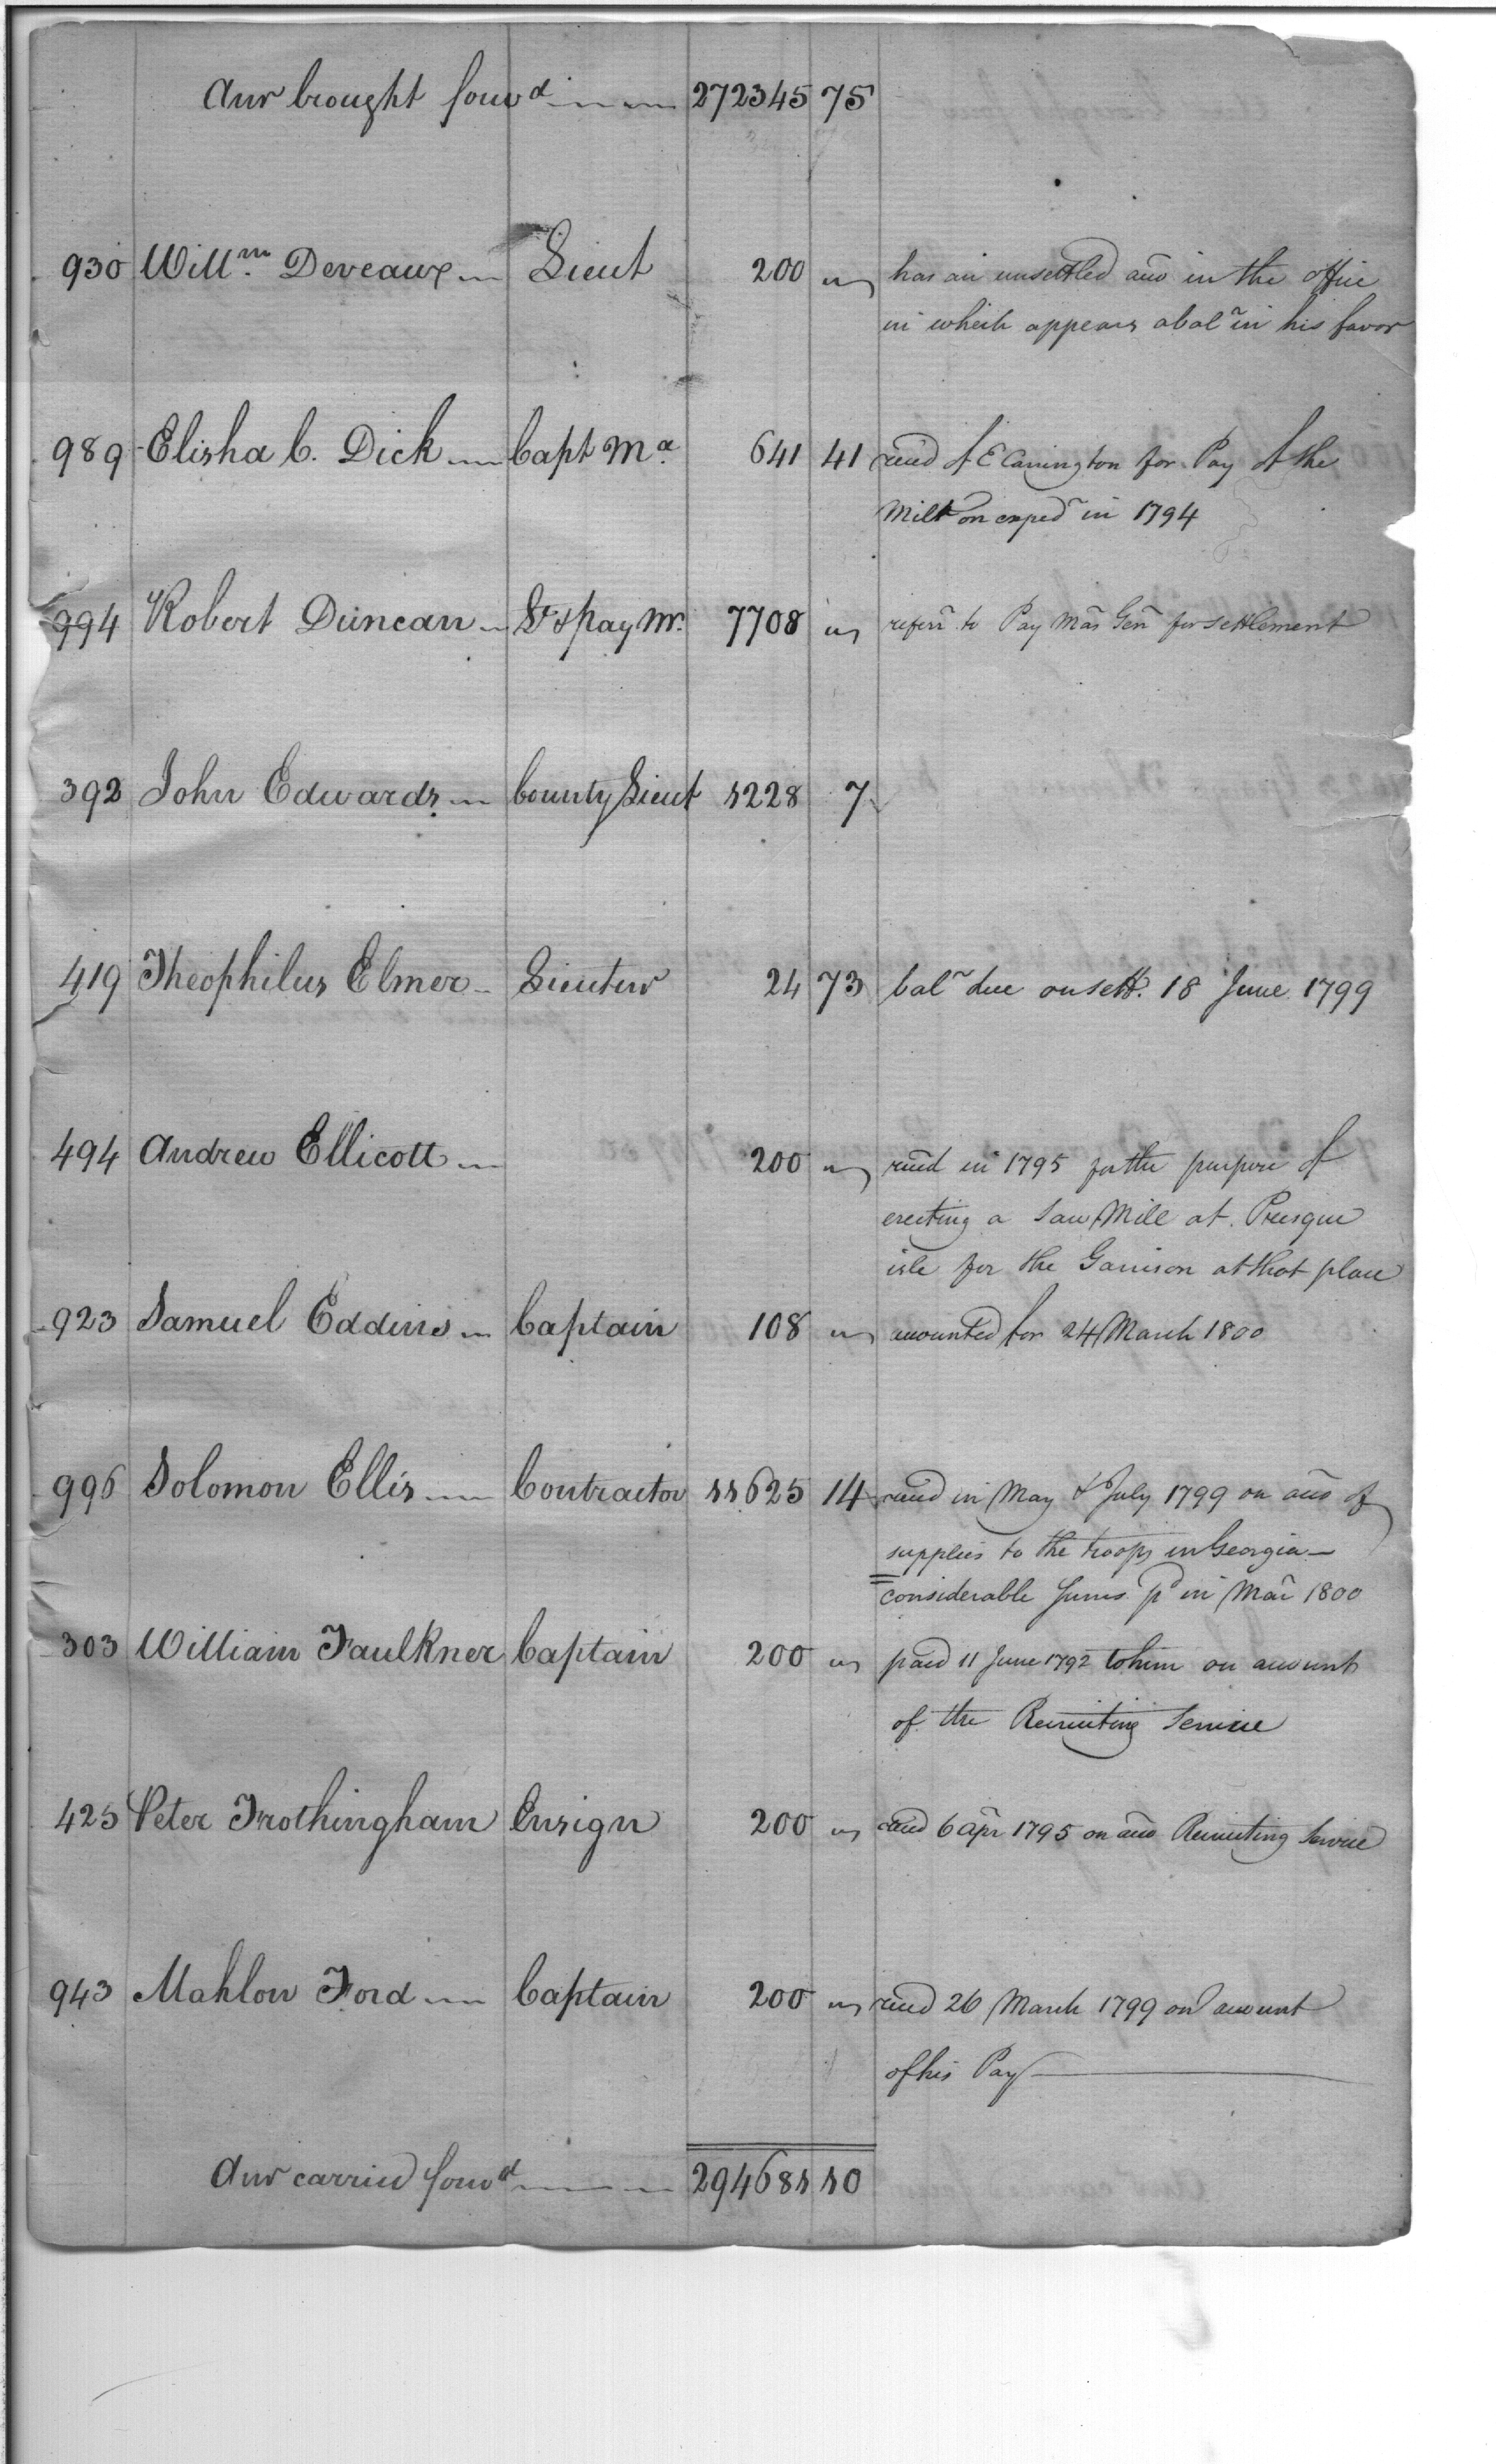 Am⁠t brought forwd 272345 75
930 Willm Deveaux Lieut 200 " has an unsettled acco in the office
in which appears a bal in his favor
989 Elisha C. Dick Capt Ma. 641 41 recd of E Carrington for Pay of the
Milt on exped in 1794
994 Robert Duncan Lt & pay Mr. 7708 " referr to Pay Mas Gen for settlement
392 John Edwards County Lieut 1228 7
419 Theophilus Elmer Lieuten 24 73 bal due on sett. 18 June 1799
494 Andrew Ellicott 200 " recd in 1795 for the purpose of
erecting a Saw Mill at Presque
isle for the Garrison at that place
923 Samuel Eddins Captain 108 " accounted for 24 March 1800
996 Solomon Ellis Contractor 11625 14 recd in May & July 1799 on acco of
supplies to the troops in Georgia
considerable sums pd in Mar 1800
303 William Faulkner Captain 200 " paid 11 June 1792 to him on account
of the Recruiting Service
425 Peter Frothingham Ensign 200 " recd 6 Apr 1795 on acco Recruiting Service
943 Mahlon Ford Captain 200 " recd 26 March 1799 on account
of his Pay
Amt carried forwd 294681 10